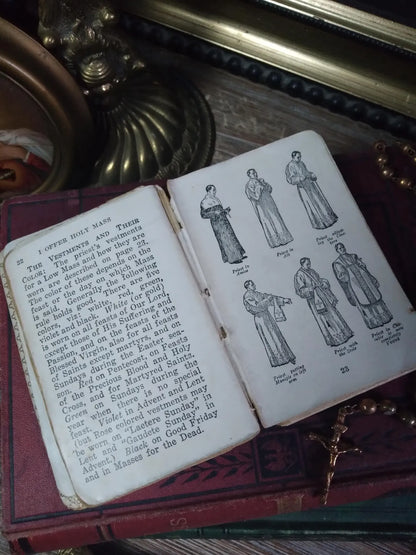 22 I OFFER HOLY MASS
THE VESTMENTS AND THEIR
COLOR: The priest's vestments
for a Low Mass and how they are
worn are described on page 23.
The color of these depends on the
feast of the day on which Mass
is said. Generally the following
rule holds good: There are five
colors, white, red, green,
violet and black. White (or gold)
is worn on all feasts of Our Lord
except those of His Suffering and
Passion, and on the feasts of the
Blessed Virgin; also for all feasts
of Saints except martyrs, and on
Sundays during the Easter sea-
son. Red on Pentecost, on feasts
of the Precious Blood and Holy
Cross, and for Martyred Saints.
Green on Sundays during the
year when there is no special
feast. Violet in Advent and Lent
(but Rose colored vestments may
be worn on "Laetere Sunday" in
Lent and "Gaudete Sunday" in
Advent.) Black on Good Friday
and in Masses for the Dead.
Priest in
Priest in
Alb
Priest
Priest putting
Maniple on left
arm
Priest with
the Stole
Priest in
23